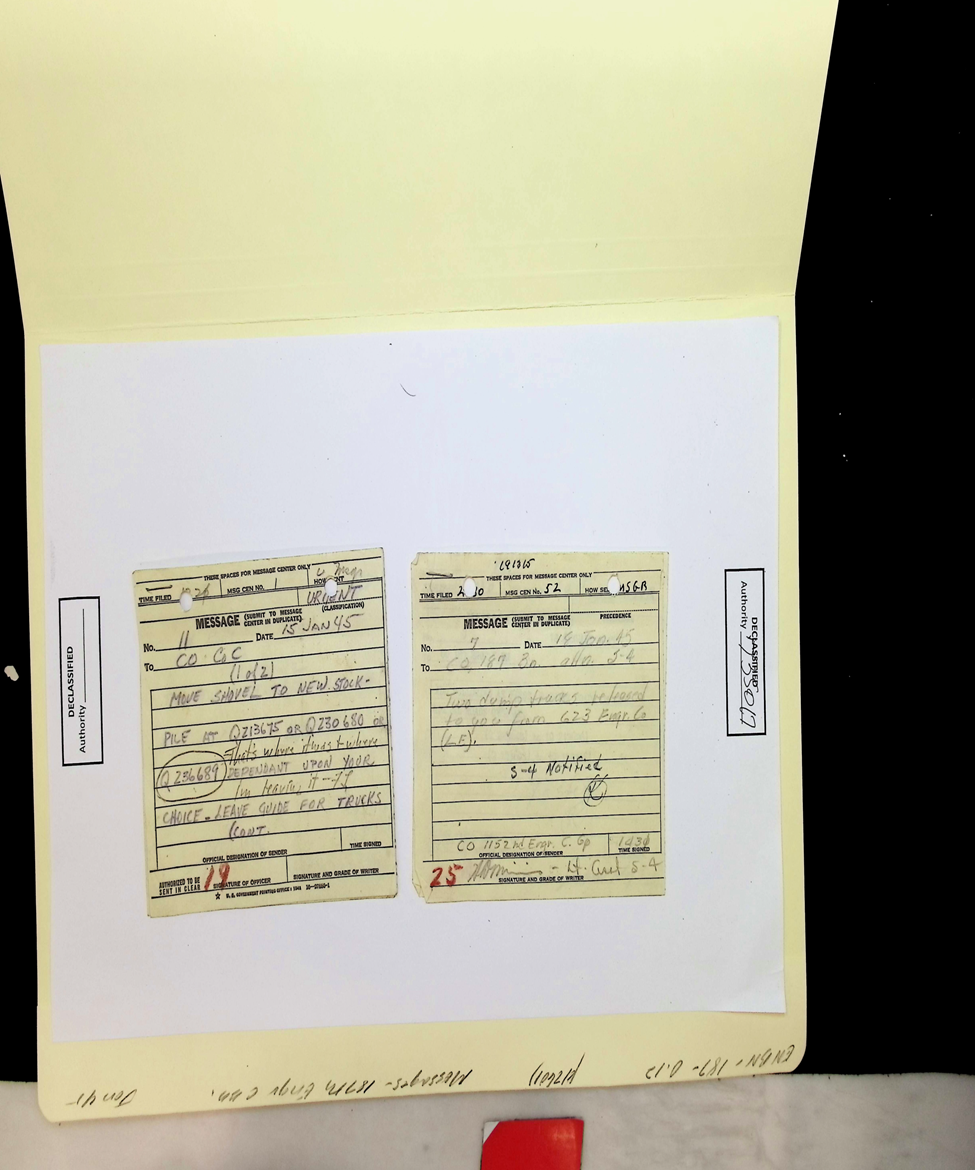 THESE SPACES FOR MESSAGE CENTER ONLY
TIME FILED MSG CEN NO. 1 HOW SENT
URGENT
(CLASSIFICATION)
MESSAGE (SUBMIT TO MESSAGE CENTER IN DUPLICATE)
No. 11 DATE 15 JAN 45
To CO Co C
(1 of 2)
MOVE SHOVEL TO NEW STOCK-
PILE AT Q213675 OR Q230680 OR
That's where it was & where
Q236689 DEPENDANT UPON YOUR
I'm leaving it
CHOICE - LEAVE GUIDE FOR TRUCKS
(CONT.
OFFICIAL DESIGNATION OF SENDER TIME SIGNED
AUTHORIZED TO BE SENT IN CLEAR
19
SIGNATURE OF OFFICER SIGNATURE AND GRADE OF WRITER
☆ U. S. GOVERNMENT PRINTING OFFICE
191315
THESE SPACES FOR MESSAGE CENTER ONLY
TIME FILED MSG CEN No. 52 HOW SENT MSGR
PRECEDENCE
MESSAGE (SUBMIT TO MESSAGE CENTER IN DUPLICATE)
No. 7 DATE 18 Jan. 45
To CO, 187 Bn. attn. S-4
Two dump trucks released
to you from 623 Engr. Co
(LE).
S-4 Notified
CO 1152nd Engr. C. Gp
OFFICIAL DESIGNATION OF SENDER TIME SIGNED
25
S-4
SIGNATURE AND GRADE OF WRITER
DECLASSIFIED
Authority
DECLASSIFIED
Authority
ENBN - 187 - 0.12
Messages - 187th Engr C Bn.
Jan 45